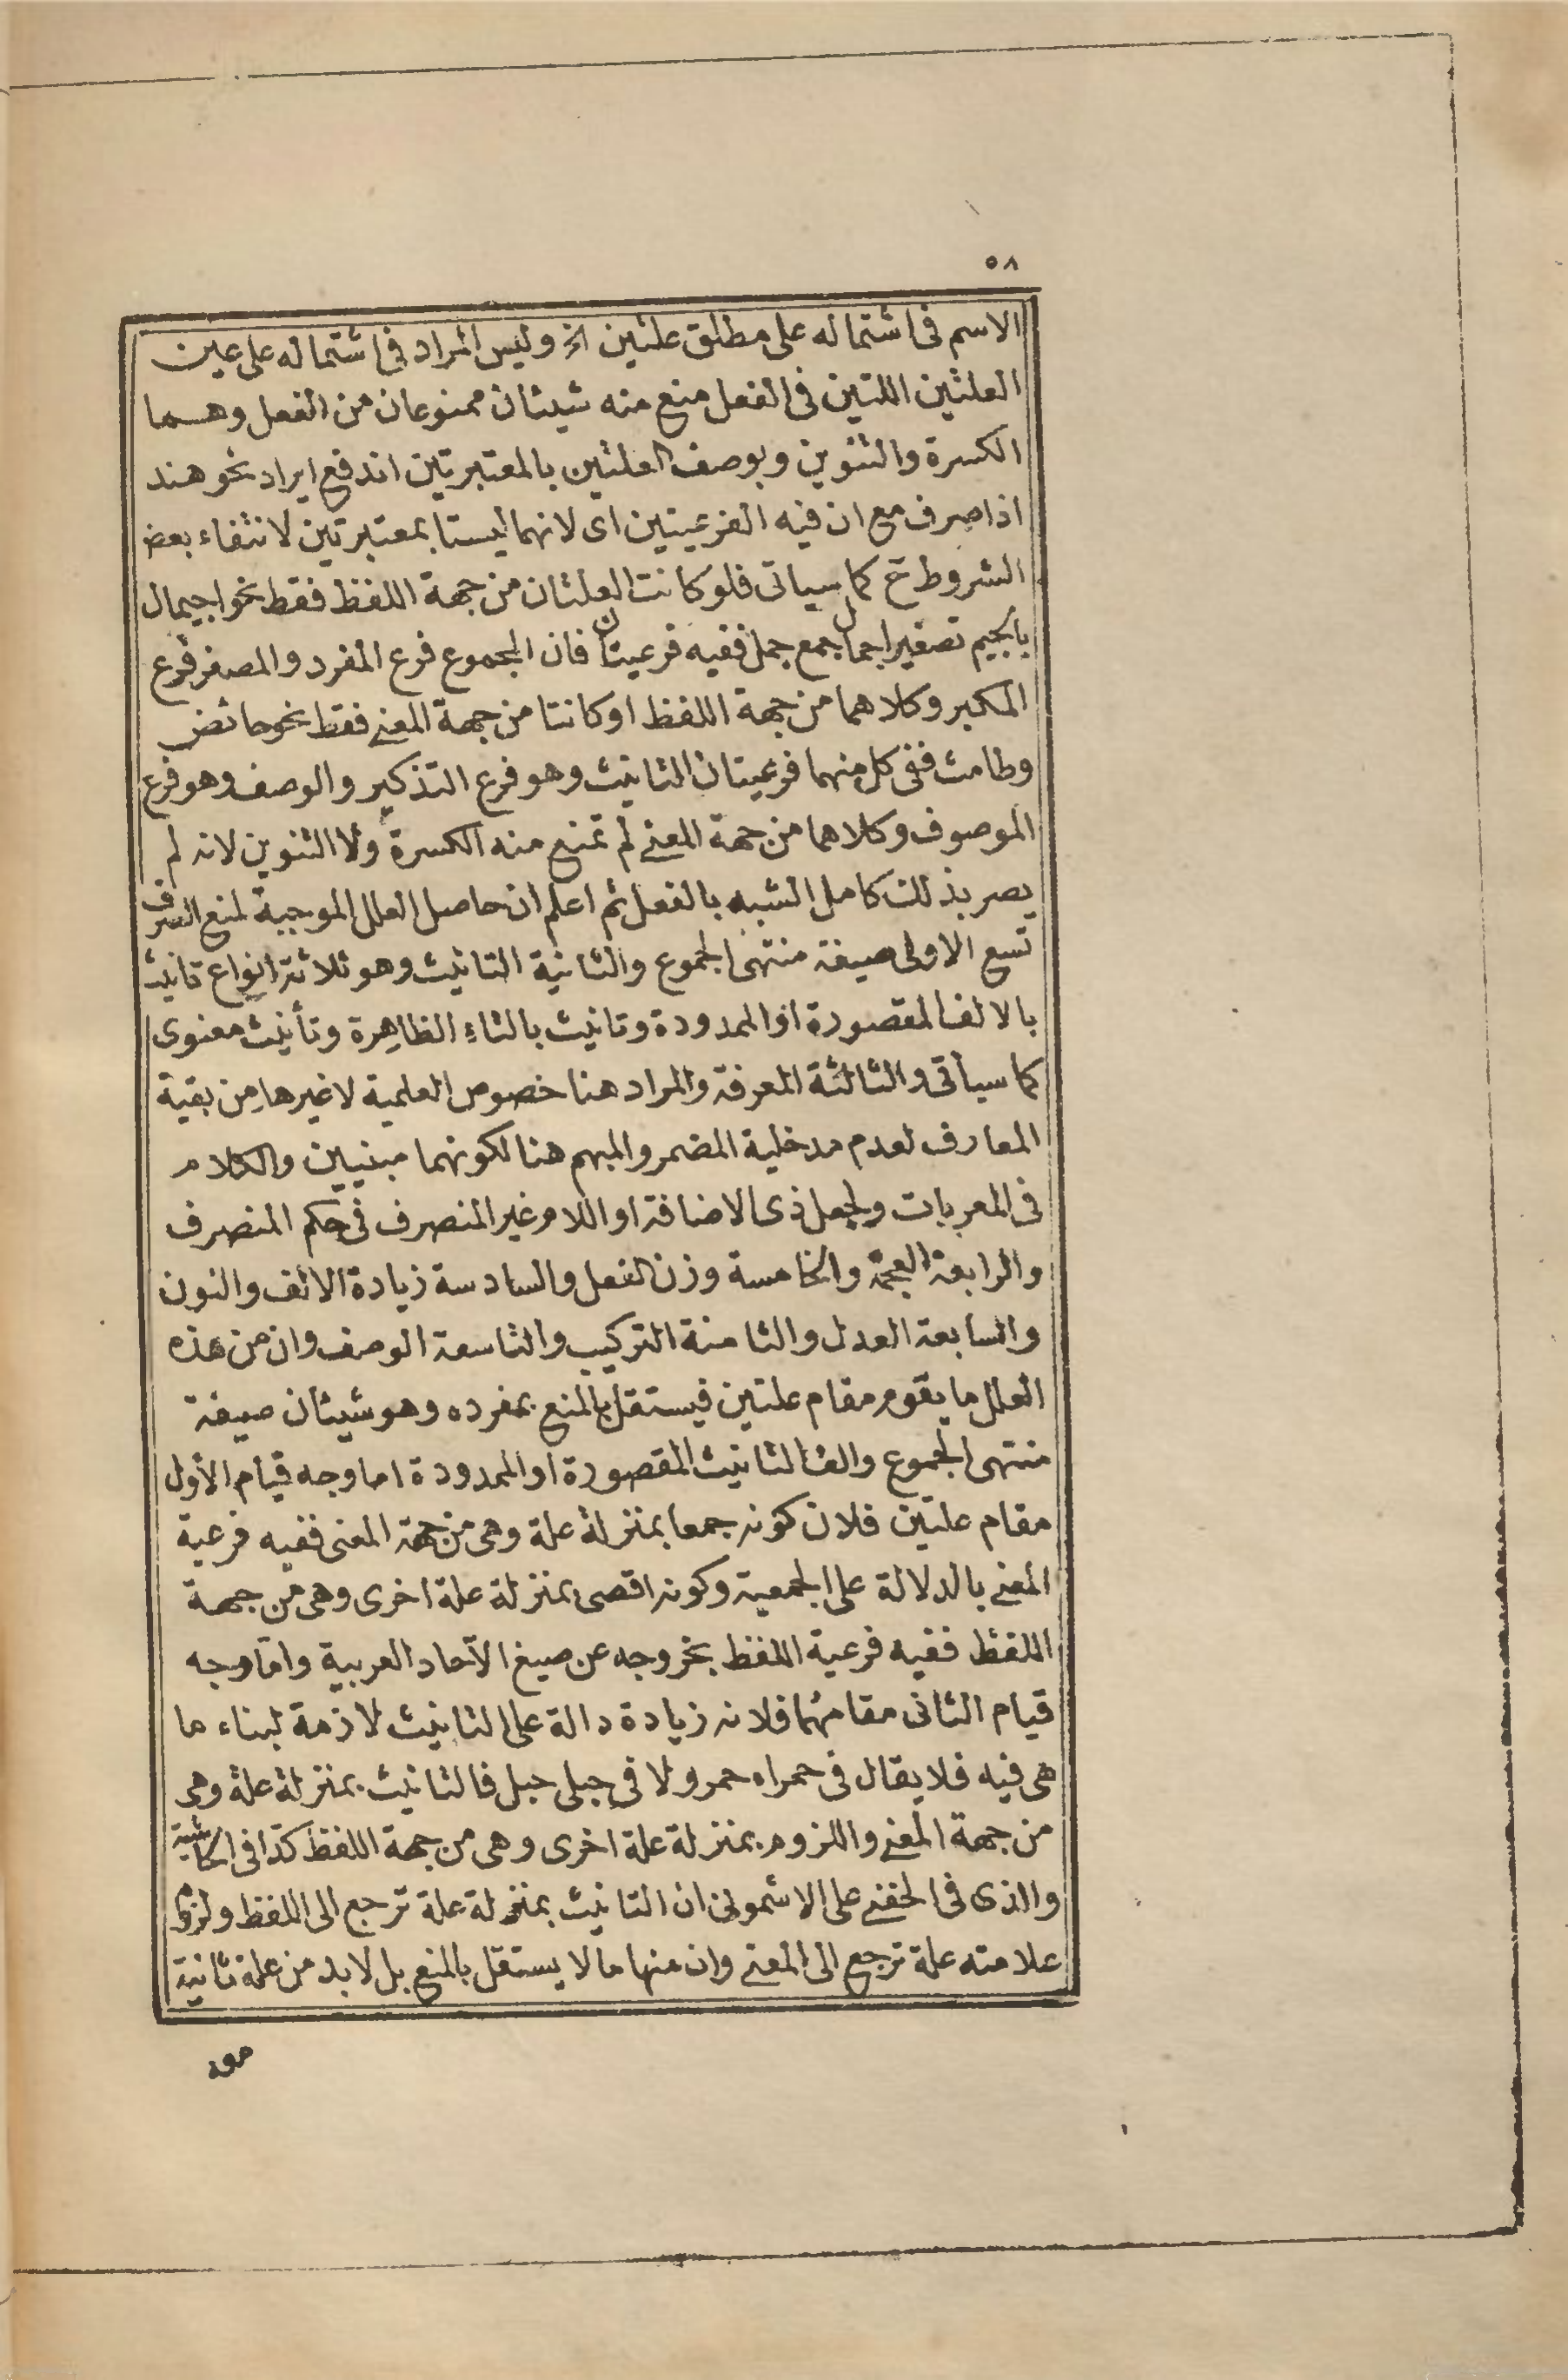 ٥٨
الاسم فى اشتماله على مطلق علتين الخ وليس المراد فى اشتماله على عين
العلتين اللتين فى الفعل منع منه شيئان ممنوعان من الفعل وهما
الكسرة والتنوين وبوصف العلتين بالمعتبرتين اندفع ايراد نحو هند
اذا صرف مع ان فيه الفرعيتين اى لانهما ليستا بمعتبرتين لانتفاء بعض
الشروط ح كما سياتى فلو كانت العلتان من جهة اللفظ فقط نحو اجيمال
بالجيم تصغير اجمال جمع جمل ففيه فرعيتان فان المجموع فرع المفرد والمصغر فرع
المكبر وكلاهما من جهة اللفظ او كانتا من جهة المعنى فقط نحو حائض
وطامث ففى كل منهما فرعيتان التانيث وهو فرع التذكير والوصف وهو فرع
الموصوف وكلاهما من جهة المعنى لم تمنع منه الكسرة ولا التنوين لانه لم
يصر بذلك كامل الشبه بالفعل ثم اعلم ان حاصل العلل الموجبة لمنع الصرف
تسع الاولى صيغة منتهى الجموع والثانية التانيث وهو ثلاثة انواع تانيث
بالالف المقصورة او الممدودة وتانيث بالتاء الظاهرة وتأنيث معنوى
كما سيأتى والثالثة المعرفة والمراد هنا خصوص العلمية لا غيرها من بقية
المعارف لعدم مدخلية المضمر والمبهم هنا لكونهما مبنيين والكلام
فى المعربات ولجعل ذى الاضافة او اللام غير المنصرف فى حكم المنصرف
والرابعة العجمة والخامسة وزن الفعل والسادسة زيادة الالف والنون
والسابعة العدل والثامنة التركيب والتاسعة الوصف وان من هذه
العلل ما يقوم مقام علتين فيستقل بالمنع بمفرده وهو شيئان صيغة
منتهى الجموع والف التانيث المقصورة او الممدودة اما وجه قيام الأول
مقام علتين فلان كونه جمعا بمنزلة علة وهى من جهة المعنى ففيه فرعية
المعنى بالدلالة على الجمعية وكونه اقصى بمنزلة علة اخرى وهى من جهة
اللفظ ففيه فرعية اللفظ بخروجه عن صيغ الآحاد العربية واما وجه
قيام الثانى مقامهما فلانه زيادة دالة على التانيث لازمة لبناء ما
هى فيه فلا يقال فى حمراء حمر ولا فى حبلى حبل فالتانيث بمنزلة علة وهى
من جهة المعنى واللزوم بمنزلة علة اخرى وهى من جهة اللفظ كذا فى الحاشية
والذى فى الحفنى على الاشمونى ان التانيث بمنزلة علة ترجع الى اللفظ ولزوم
علامته علة ترجع الى المعنى وان منها ما لا يستقل بالمنع بل لا بد من علة ثانية
معه